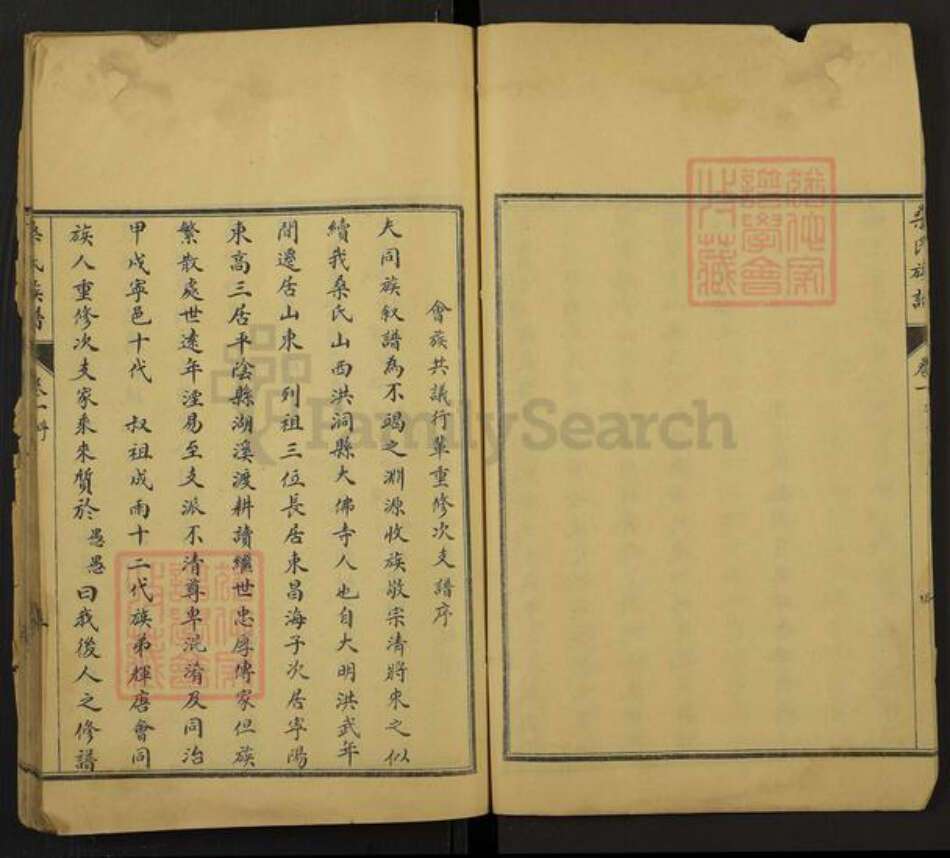 桑氏族譜
卷一
會族共議行輩重修次支譜序
夫同族敘譜為不竭之淵源收族敬宗清將來之似
續我桑氏山西洪洞縣大佛寺人也自大明洪武年
間遷居山東 列祖三位長居東昌海子次居寧陽
東高三居平陰縣湖溪渡耕讀繼世忠厚傳家但族
繁散處世遠年湮易至支派不清尊卑混淆及同治
甲戌寧邑十代 叔祖成雨十二代族弟輝唐會同
族人重修次支家乘來質於愚愚曰我後人之修譜
桑氏族譜
卷一序
FamilySearch